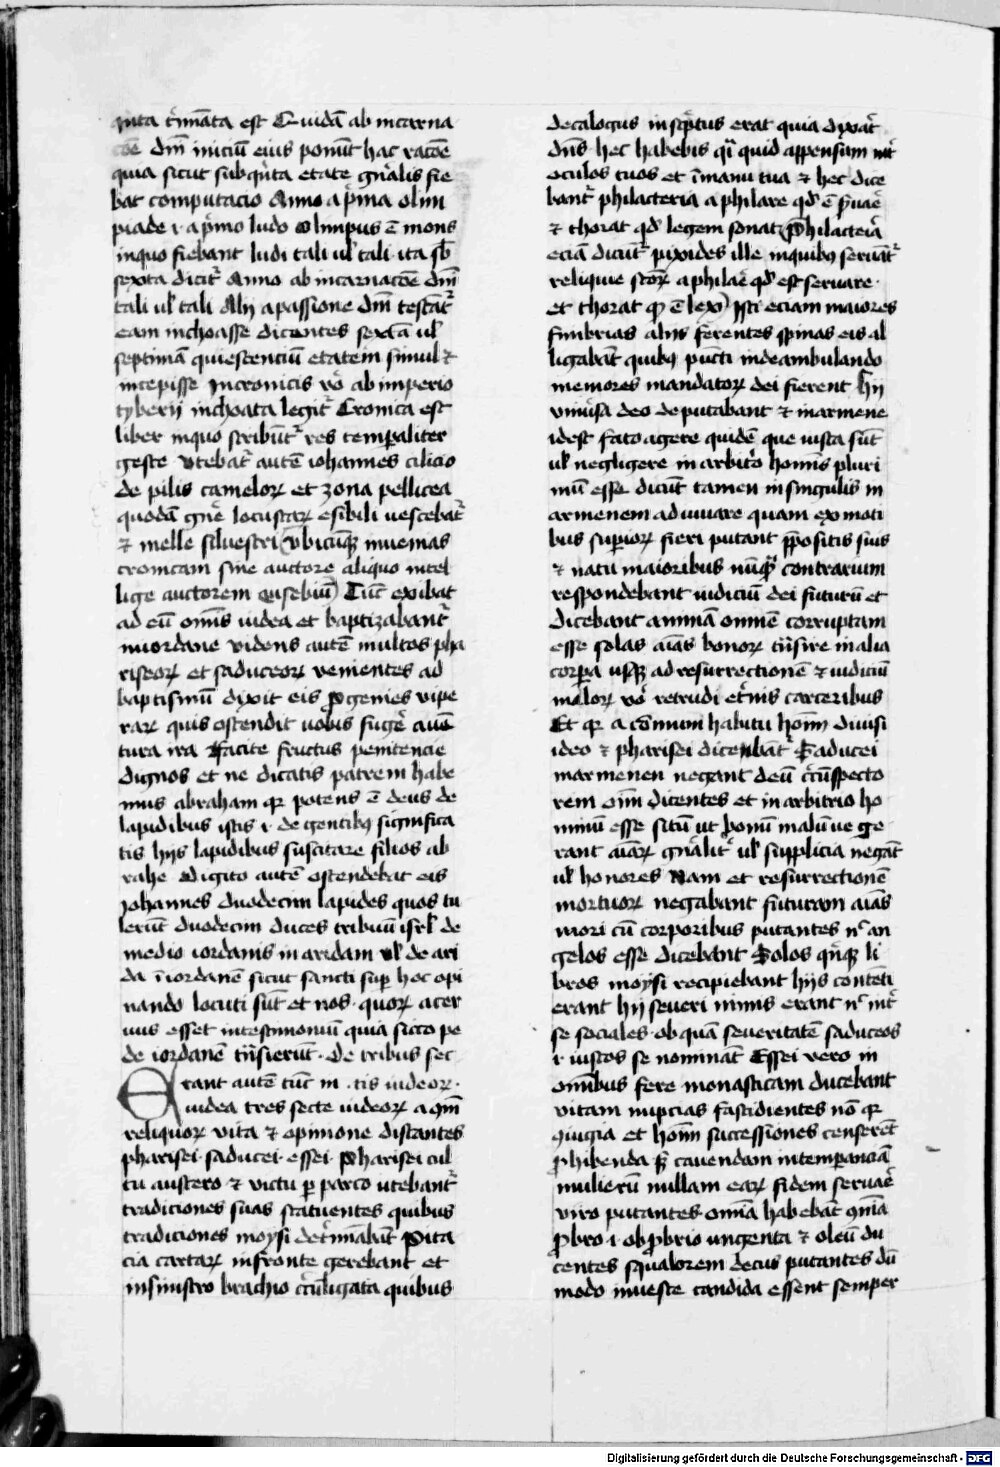 quīta t̓mīata est Quidā ab incarna
cōe dn̄i iniciū eius ponūt hac racōe
quia sicut sub qn̓ta etate gn̓alis fie
bat computacio Anno a p̓ma olim
piade ⁊ a p̓mo ludo Olimpus ē mons
in quo fiebant ludi tali ul̓ tali ita sb̄
sexta dicit᷑ Anno ab incarnacōe dn̄i
tali ul̓ tali Alij a passione dn̄i testāt᷑
eam inchoasse dicentes sextā ul̓
septimā quiescenciū etatem simul ⁊
incepisse In cronicis v̓o ab imperio
tyberij inchoata legit᷑ Cronica est
liber in quo scribūt᷑ res tempaliter
geste Utebat᷑ autē iohannes cilicio
de pilis cameloꝝ et zona pellicea
quodā gn̓e locustaꝝ esibili uescebat᷑
⁊ melle siluestri (Vbicūqꝫ inuenias
cronicam sine auctore aliquo intel
lige auctorem eusebiū) Tūc exibat
ad eū om̄is iudea et baptizabant᷑
in iordane videns autē multos pha
riseoꝝ et saduceoꝝ venientes ad
baptismū dixit eis Progenies vipe
raꝝ quis ostendit uobis fuge̓ a uē
tura ira Facite fructus penitencie
dignos et ne dicatis patrem habe
mus abraham qꝛ potens ē deus de
lapidibus istis .i. de gentibꝫ significa
tis hijs lapidibus suscitare filios ab
rahe Digito autē ostendebat eis
Johannes duodecim lapides quos tu
lerūt duodecim duces tribuū isrl̓ de
medio iordanis in aridam vl̓ de ari
da ī iordanē sicut sancti sup̱ hoc opi
nando locuti sūt et nos· quoꝝ acer
uus esset in testimoniū quia sicco pe
de iordanē tn̓sierūt· De tribus sec
Erant autē tūc in .tis iudeoꝝ·
iudea tres secte iudeoꝝ a 9mī
reliquoꝝ vita ⁊ opinione distantes
pharisei· saducei· essei· Pharisei cul
tu austero ⁊ victu ꝑ parco utebant᷑
tradiciones suas statuentes quibus
tradiciones moysi det̓mīabāt Pita
cia cartaꝝ in fronte gerebant et
in sinistro brachio c̓cūligata quibus
decalogus inscp̓tus erat quia dixat̓
dn̄s hec habebis q̓i quid appensum int̓
oculos tuos et ī manu tua ⁊ hec dice
bant᷑ philacteria a philare qd̓ ē s̓uae̓
⁊ thorat qd̓ legem sonat (Philacteia̓
eciā dicūt᷑ pixides ille in quibꝫ seruāt᷑
reliquie sc̄oꝝ a philae̓ qd̓ est seruare·
et thorat qd̓ ē lex) Isti eciam maiores
fimbrias alijs ferentes spinas eis al
ligabāt quibꝫ pūcti in deambulando
memores mandatoꝝ dei fierent Hij
vniu̓sa deo deputabant ⁊ in armene
idest fato agere quidē que iusta sūt
ul̓ negligere in arbitō hom̄is pluri
mū esse dicūt tamen in singulis in
armenem adiuuare quam ex moti
bus sup̱ioꝝ fieri putant p̱positis suis
⁊ natu maioribus nūqꝫ contrarium
respondebant iudiciū dei futurū et
dicebant animā omnē corruptam
esse solas aīas bonoꝝ tn̓sire in alia
corꝑa usqꝫ ad resurrectionē ⁊ iudiciū
maloꝝ vo̓ retrudi et̓nis carceribus
Et qꝛ a cōmuni habitu hoīm diuisi
ideo ⁊ pharisei dicebāt᷑ Saducei
in armenen negant deū c̓cūspecto
rem oīm dicentes et in arbitrio ho
minū esse sitū ut bonū malū ue ge
rant aīaꝝ gn̓alit᷑ ul̓ supplicia negāt
ul̓ honores Nam et resurrectionē
mortuoꝝ negabant futuram aīas
mori cū corporibus putantes n̄ an
gelos esse dicebant Solos qn̓qꝫ li
bros moysi recipiebant hijs contēti
erant hij seueri nimis erant n̄ int̓
se sociales· ob quā seueritatē saduceos
.i. iustos se nomināt Essei vero in
omībus fere monasticam ducebant
vitam nupcias fastidientes nō qꝛ
9iugia et hoīm successiones censerēt
ꝓhibenda sꝫ cauendam intemperanciā
mulierū nullam eaꝝ fidem seruae̓
viro putantes omīa habebāt 9mīa
ꝓbro .i. obꝓbrio ungenta ⁊ oleū du
centes squalorem decus putantes dū
modo in ueste candida essent semper
Digitalisierung gefördert durch die Deutsche Forschungsgemeinschaft - DFG